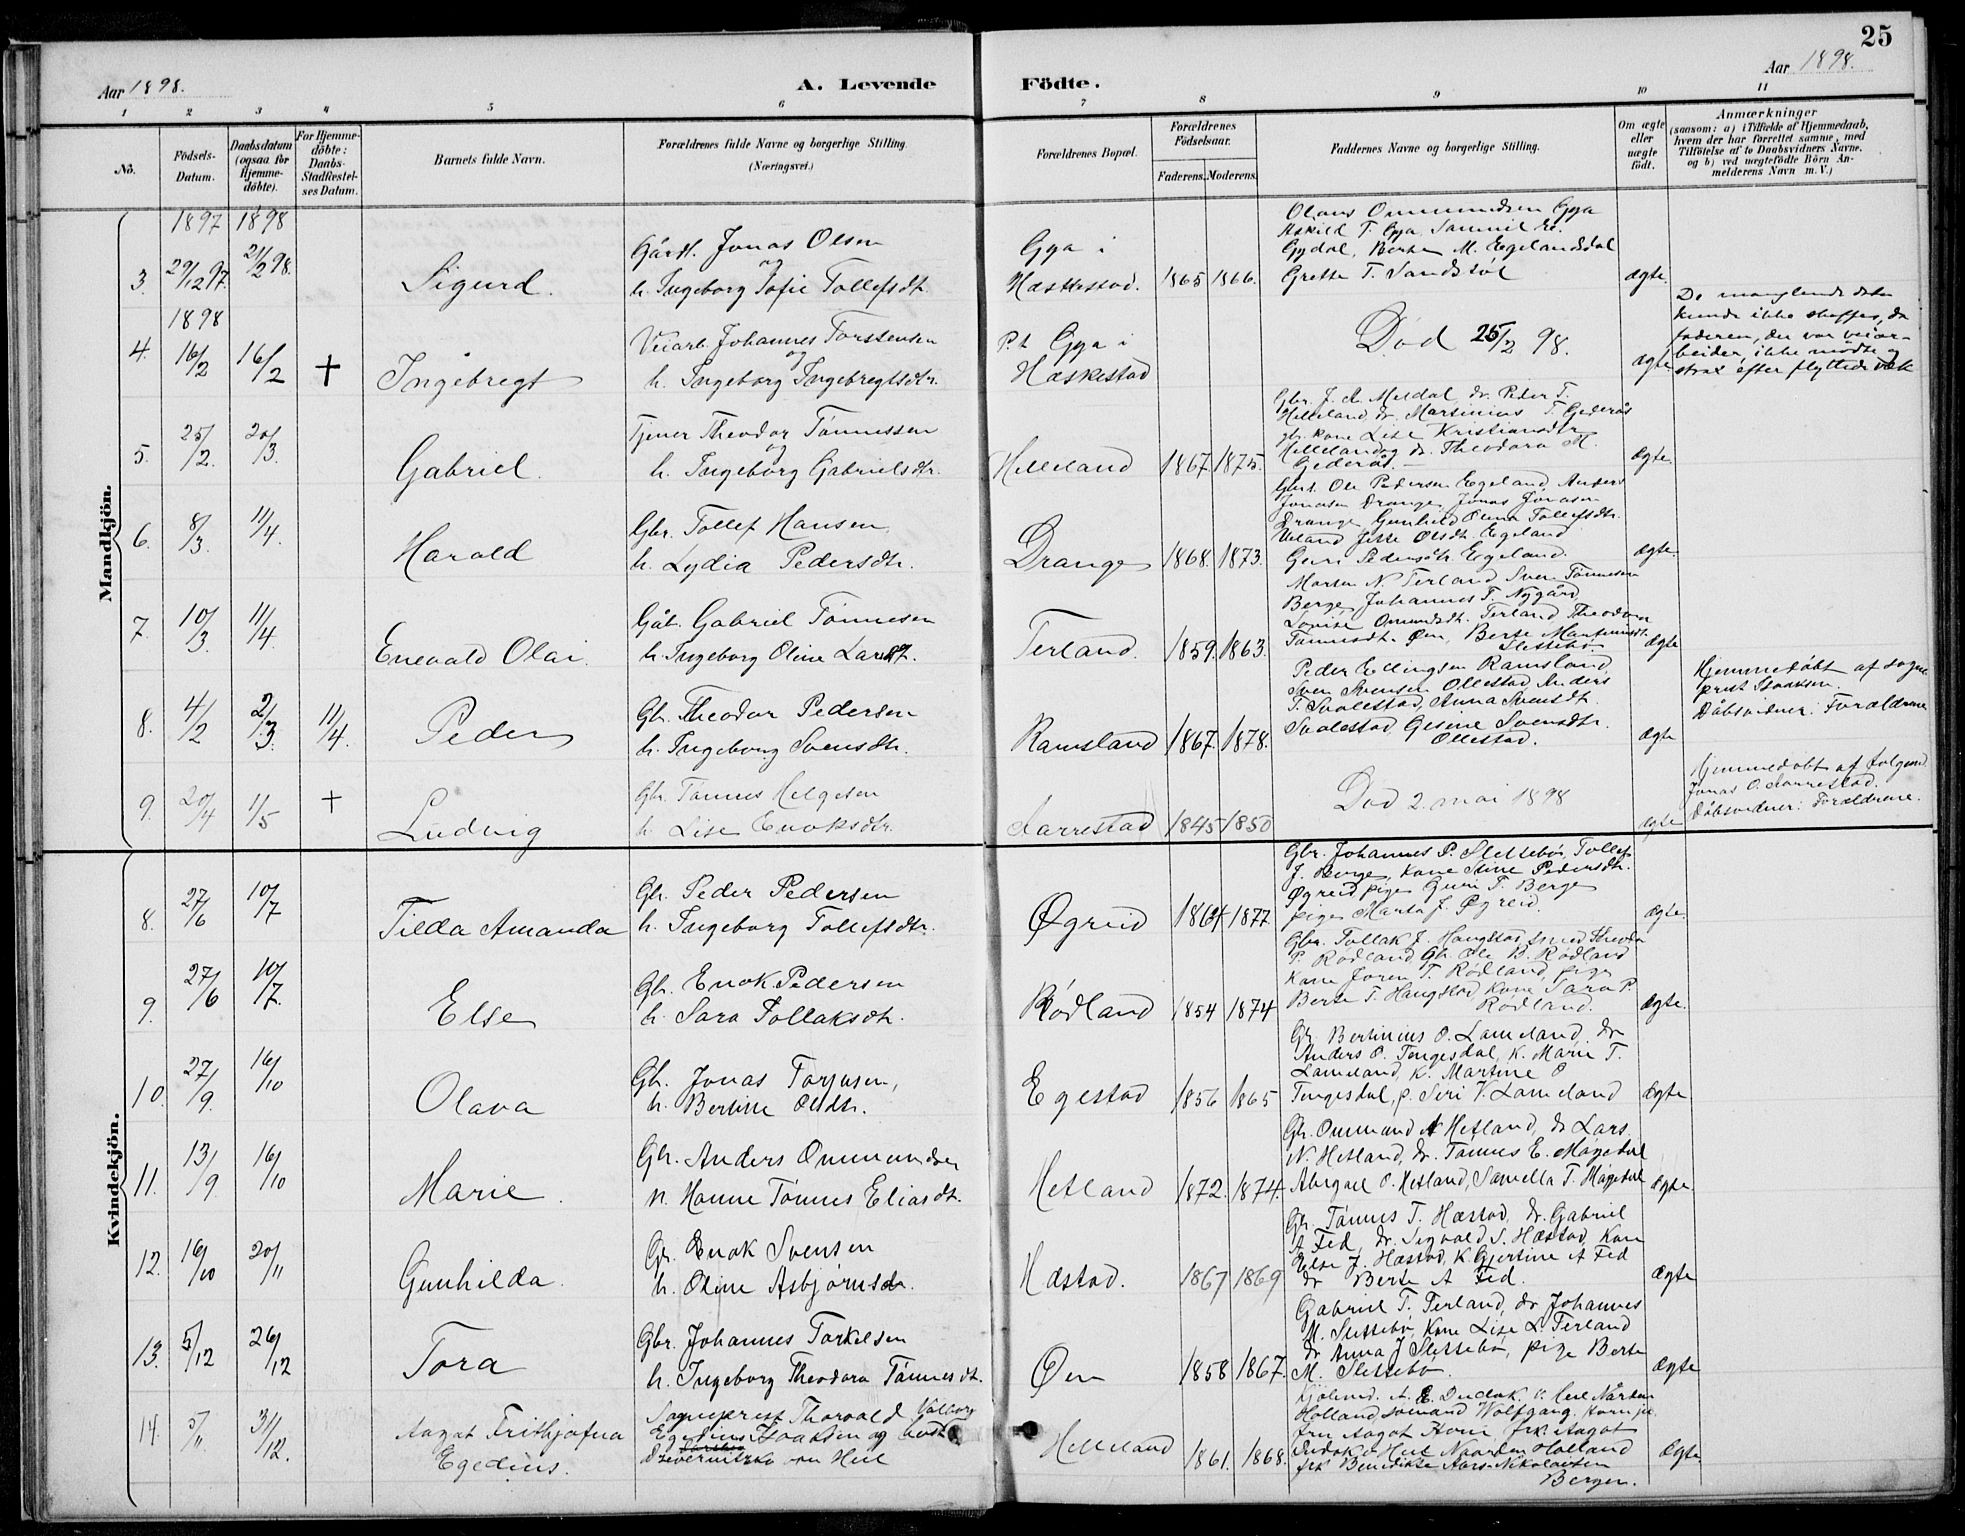 25
Aar 1898.
A. Levende Födte.
Aar 1898.
1 2 3 4 5 6 7 8 9 10 11
No.
Födsels-Datum.
Daabsdatum (ogsaa for Hjemme-döbte).
For Hjemme-döbte: Daabs-Stadfæstel-ses Datum.
Barnets fulde Navn.
Forældrenes fulde Navne og borgerlige Stilling. (Næringsvei.)
Forældrenes Bopæl.
Forældrenes Födselsaar.
Faderens. Moderens.
Faddernes Navne og borgerlige Stilling.
Om ægte eller uægte födt.
Anmærkninger
(saasom: a) i Tilfælde af Hjemmedaab, hvem der har forrettet samme, med Tilföielse af to Daabsvidners Navne, og b) ved uægtefödte Börn Anmelderens Navn m. V.)
Mandkjön.
1897 1898
3. 29/12 97. 21/2 98. Sigurd.
Gårdb. Jonas Olsen
og
h. Ingeborg Sofie Tollefsdt.
Gya i
Hæskestad. 1865 1866.
Olaus Ommundsen Gya
Askild T. Gya, Samuel
Gydal, Berte M. Egelandsdal
Grethe T. Sandstøl
ægte.
1898
4. 16/2 16/2 + Ingebregt
Veiarb. Johannes Torstensen
og
h. Ingeborg Ingebregtsdtr.
P.t. Gya i
Hæskestad
Død 25/2 98.
ægte.
De manglende data
kunde ikke skaffes, da
faderen, der var veiar-
beider, ikke mødte og
strax efter flyttede væk
5. 25/2. 20/3. Gabriel.
Tjener Theodor Tønnessen
og
h. Ingeborg Gabrielsdtr.
Helleland 1867. 1875.
Gbr. J. A. Meldal, dr. Peder T.
Helleland, dr. Martinius T. Gjederås
gbr. kone Lise Kristiansdtr
Helleland og dr. Theodora M.
Gjederås.
ægte.
6. 8/3. 11/4. Harald
Gbr. Tollef Hansen
h. Lydia Pedersdtr.
Drange 1868. 1873.
Gbr. Ole Pedersen Egeland, Anders
Jonasen Drange, Jonas Jonasen
Drange, Gunhild Olina Tollefsdtr.
Ueland, Jitte Olsdt. Egeland
Guri Pedersdtr. Egeland.
ægte.
7. 10/3 11/4. Enevald Olai.
Gbr. Gabriel Tønnesen
h. Ingeborg Oline Larsdt.
Terland. 1859. 1863.
Morten N. Terland, Sven Tønnesen
Berge, Johannes T. Nygård
Lovise Omundsdt. Terland, Theodora
Tønnesdt. Øen, Berte Martinusdt.
Slettebø
ægte
8. 4/2 2/3. 11/4. Peder
Gb. Theodor Pedersen
h. Ingeborg Svensdtr.
Ramsland 1867. 1878.
Peder Ellingsen Ramsland
Sven Svensen Ollestad, Anders
T. Svalestad, Anna Svensdt.
Svalestad, Gesine Svensdtr.
Ollestad.
ægte
Hjemmedøbt af sogne
prest Isaaksen.
Dåbsvidner: Forældrene
9. 20/4 1/5 + Ludvig
Gbr. Tønnes Helgesen
h. Lise Enoksdtr.
Aarrestad 1845 1850
Død 2. mai 1898
ægte
Hjemmedøbt af
Jonas O. Aarrestad.
Dåbsvidner: Forældrene.
Kvindekjön.
8. 27/6 10/7 Tilda Amanda
Gb. Peder Pedersen
h. Ingeborg Tollefsdtr.
Øgreid 1864 1877.
Gbr. Johannes P. Slettebø, Tollef
J. Berge, kone Stine Pedersdtr.
Øgreid, pige Guri T. Berge
pige Marta J. Øgreid.
ægte.
9. 27/6 10/7. Else
Gb. Enok Pedersen
h. Sara Tollaksdt.
Rødland 1854 1874
Gbr. Tollak J. Haugstad, smed Theodor
P. Rødland, Gb. Ole B. Rødland
Kone Joren T. Rødland, pige
Berte T. Haugstad, Kone Sara P.
Rødland.
ægte.
10. 27/9. 16/10 Olava
Gb. Jonas Torjusen,
h. Bertine Olsdtr.
Egestad 1856 1865
Gb. Bertinius O. Lameland, dr
Anders O. Tengesdal, K. Marie T.
Lameland, K. Martine O
Tengesdal, p. Siri V. Lameland
ægte
11. 13/9 16/10 Marie.
Gb. Anders Ommundsen
h. Hanne Tønnes Eliasdt.
Hetland 1872. 1874.
Gb. Ommund A Hetland, dr Lars
N. Hetland, dr. Tønnes E. Mågedal
Abigael O. Hetland, Samella T. Mågedal
ægte.
12. 16/10 20/11 Gunhilda.
Gb. Enok Svensen
h. Oline Asbjørnsdr.
Hæstad. 1867 1869
Gb. Tønnes T. Hæstad, dr. Gabriel
A Fed, dr. Sigvald S. Hæstad, Kone
Else J. Hæstad, K. Gjertine A Fed
dr Berte A Fed.
ægte
13. 5/12 26/12 Tora
Gbr. Johannes Torkelsen
h. Ingeborg Theodora Tønnesdt.
Øen 1858 1867.
Gabriel T. Terland, dr Johannes
M. Slettebø, Kone Lise L. Terland
dr Anna J Slettebø, pige Berte
M. Slettebø
ægte
14. 5/11. 31/12. Aagat Frithjofna
Egedius.
Sogneprest Thorvald
Egedius Isaaksen og hustr Valborg
Dzwernitzka van Herl
Helleland 1861. 1868.
Holland, sømand Wolfgang
fru Aagot frk. Aagot
Holland
frk Benedikte Aars-Nikolaisen
Bergen.
ægte